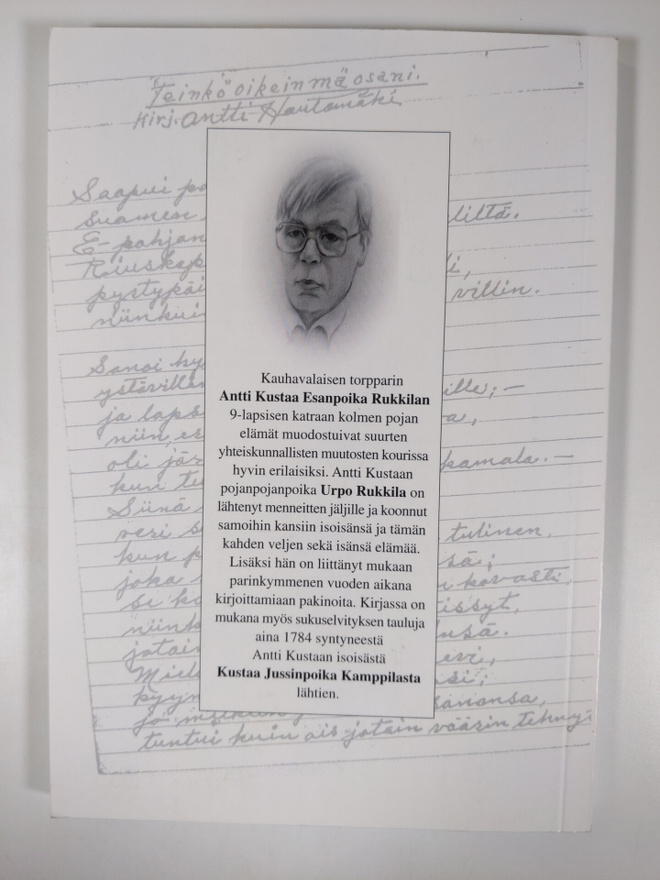 Teinkö oikein mä osani.
Kirj. Antti Hautamäki
Saapui
suomen liltä.
E-pohjan
Riuskap
pystypäi villin.
niinkui
Sanoi
ystävillen ille; —
ja laps
niin, es
oli jär kamala. —
kun tu
Siinä
veri s tulinen,
kun p sä;
joka kovasti,
se ko issyt,
niink sä.
jotain evi,
Miel si;
kyyn sanansa,
tuntui kuin ois jotain väärin tehny
Kauhavalaisen torpparin
Antti Kustaa Esanpoika Rukkilan
9-lapsisen katraan kolmen pojan
elämät muodostuivat suurten
yhteiskunnallisten muutosten kourissa
hyvin erilaisiksi. Antti Kustaan
pojanpojanpoika Urpo Rukkila on
lähtenyt menneitten jäljille ja koonnut
samoihin kansiin isoisänsä ja tämän
kahden veljen sekä isänsä elämää.
Lisäksi hän on liittänyt mukaan
parinkymmenen vuoden aikana
kirjoittamiaan pakinoita. Kirjassa on
mukana myös sukuselvityksen tauluja
aina 1784 syntyneestä
Antti Kustaan isoisästä
Kustaa Jussinpoika Kamppilasta
lähtien.